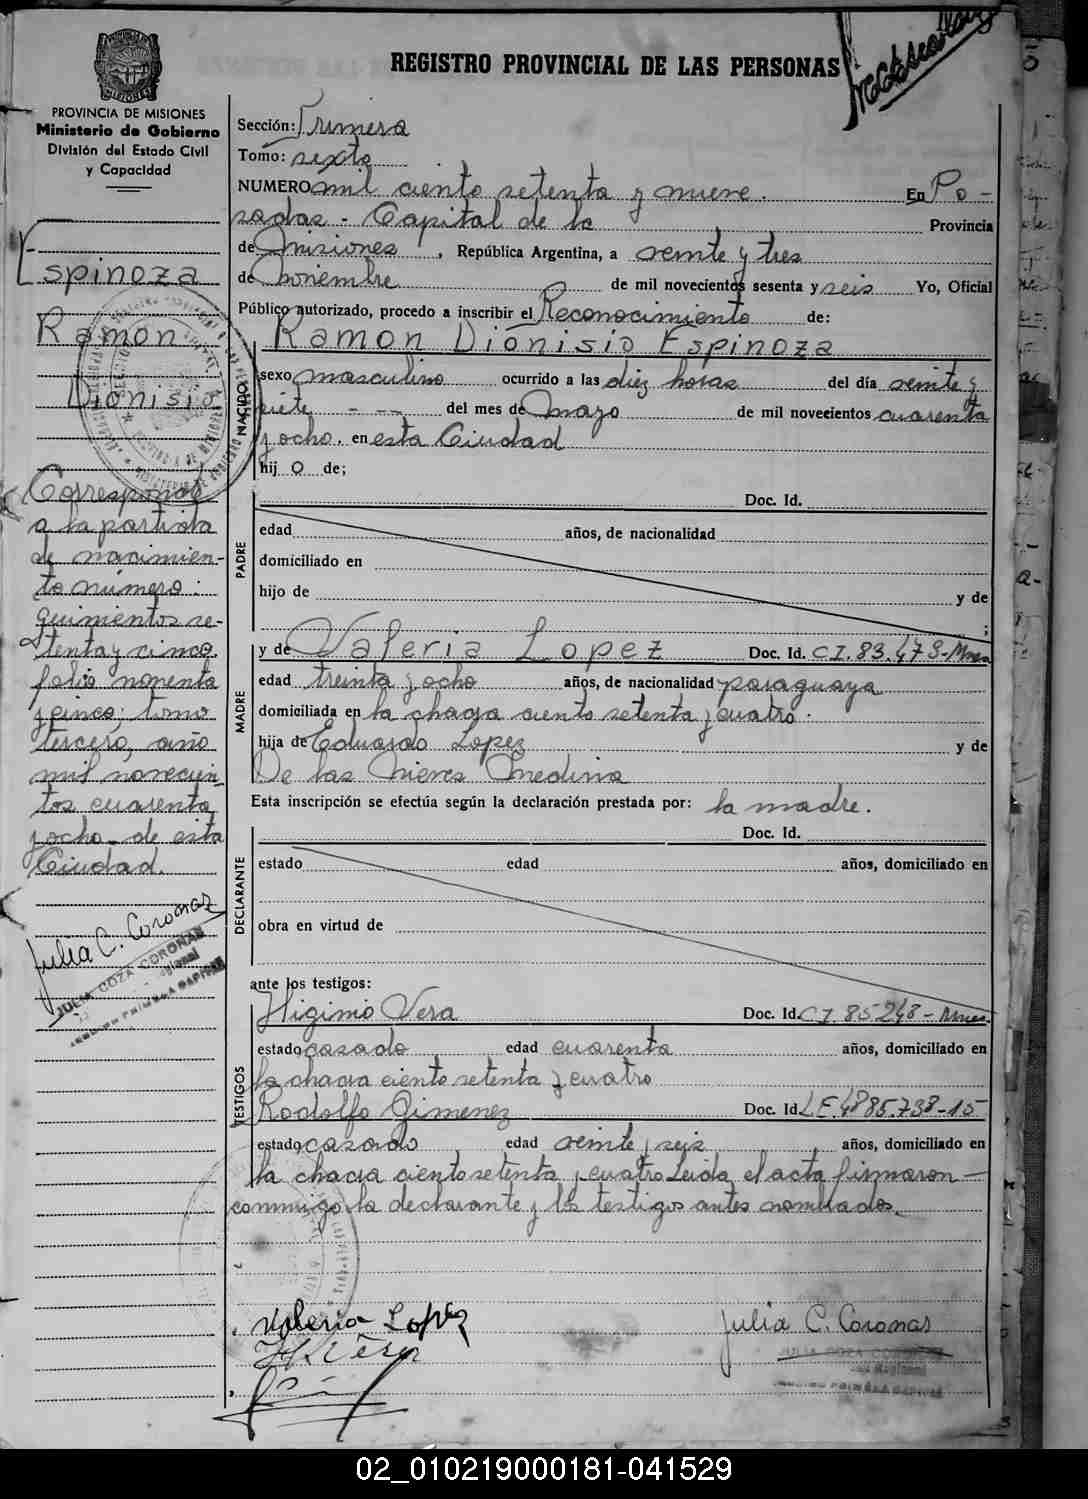 REGISTRO PROVINCIAL DE LAS PERSONAS
PROVINCIA DE MISIONES
Ministerio de Gobierno
División del Estado Civil
y Capacidad
Espinoza
Ramon
Dionisio
Corresponde
a la partida
de nacimien-
to número:
quinientos se-
tenta y cinco.
folio noventa
y cinco; tomo
tercero, año
mil novecien-
tos cuarenta
y ocho - de esta
Ciudad.
Julia C. Coronas
JULIA COZA CORONAS
Sección: Primera
Tomo: sexto
NUMERO mil ciento setenta y nueve. En Po-
sadas - Capital de la Provincia
de Misiones, República Argentina, a veinte y tres
de noviembre de mil novecientos sesenta y seis Yo, Oficial
Público autorizado, procedo a inscribir el Reconocimiento de:
Ramon Dionisio Espinoza
NACIDO
sexo masculino ocurrido a las diez horas del día veinte y
siete - -- del mes de Mayo de mil novecientos cuarenta
y ocho. en esta Ciudad
hij o de;
PADRE
Doc. Id.
edad años, de nacionalidad
domiciliado en
hijo de y de
;
MADRE
y de Valeria Lopez Doc. Id. C.I. 83.478-Mnes
edad treinta y ocho años, de nacionalidad paraguaya
domiciliada en la chacra ciento setenta y cuatro.
hija de Eduardo Lopez y de
De las Nieves Medina
Esta inscripción se efectúa según la declaración prestada por: la madre.
DECLARANTE
Doc. Id.
estado edad años, domiciliado en
obra en virtud de
ante los testigos:
TESTIGOS
Higinio Vera Doc. Id. C.I. 85248-Mnes.
estado casado edad cuarenta años, domiciliado en
la chacra ciento setenta y cuatro
Rodolfo Gimenez Doc. Id. L.E. 4885.738-15
estado casado edad veinte y seis años, domiciliado en
la chacra ciento setenta y cuatro Leida el acta firmaron
conmigo la declarante y los testigos antes nombrados.
Valeria Lopez
Julia C. Coronas
JULIA COZA CORONAS
02_010219000181-041529